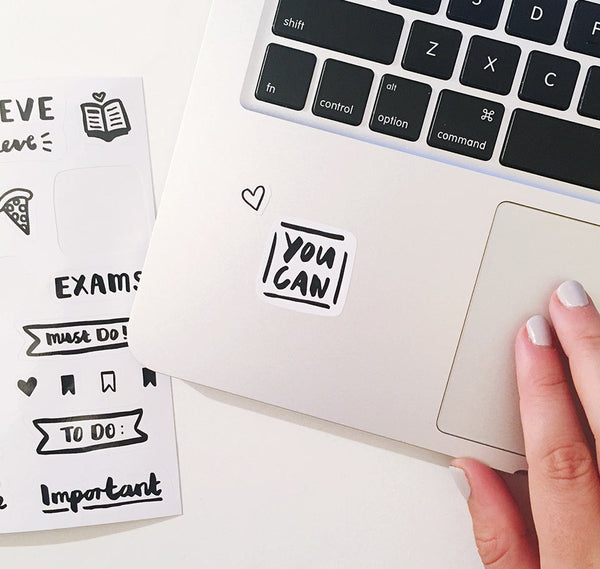 EVE
eve
EXAMS
must Do!
TO DO:
Important
shift
S
D
F
Z
X
C
fn
control
alt
option
⌘
command
YOU
CAN